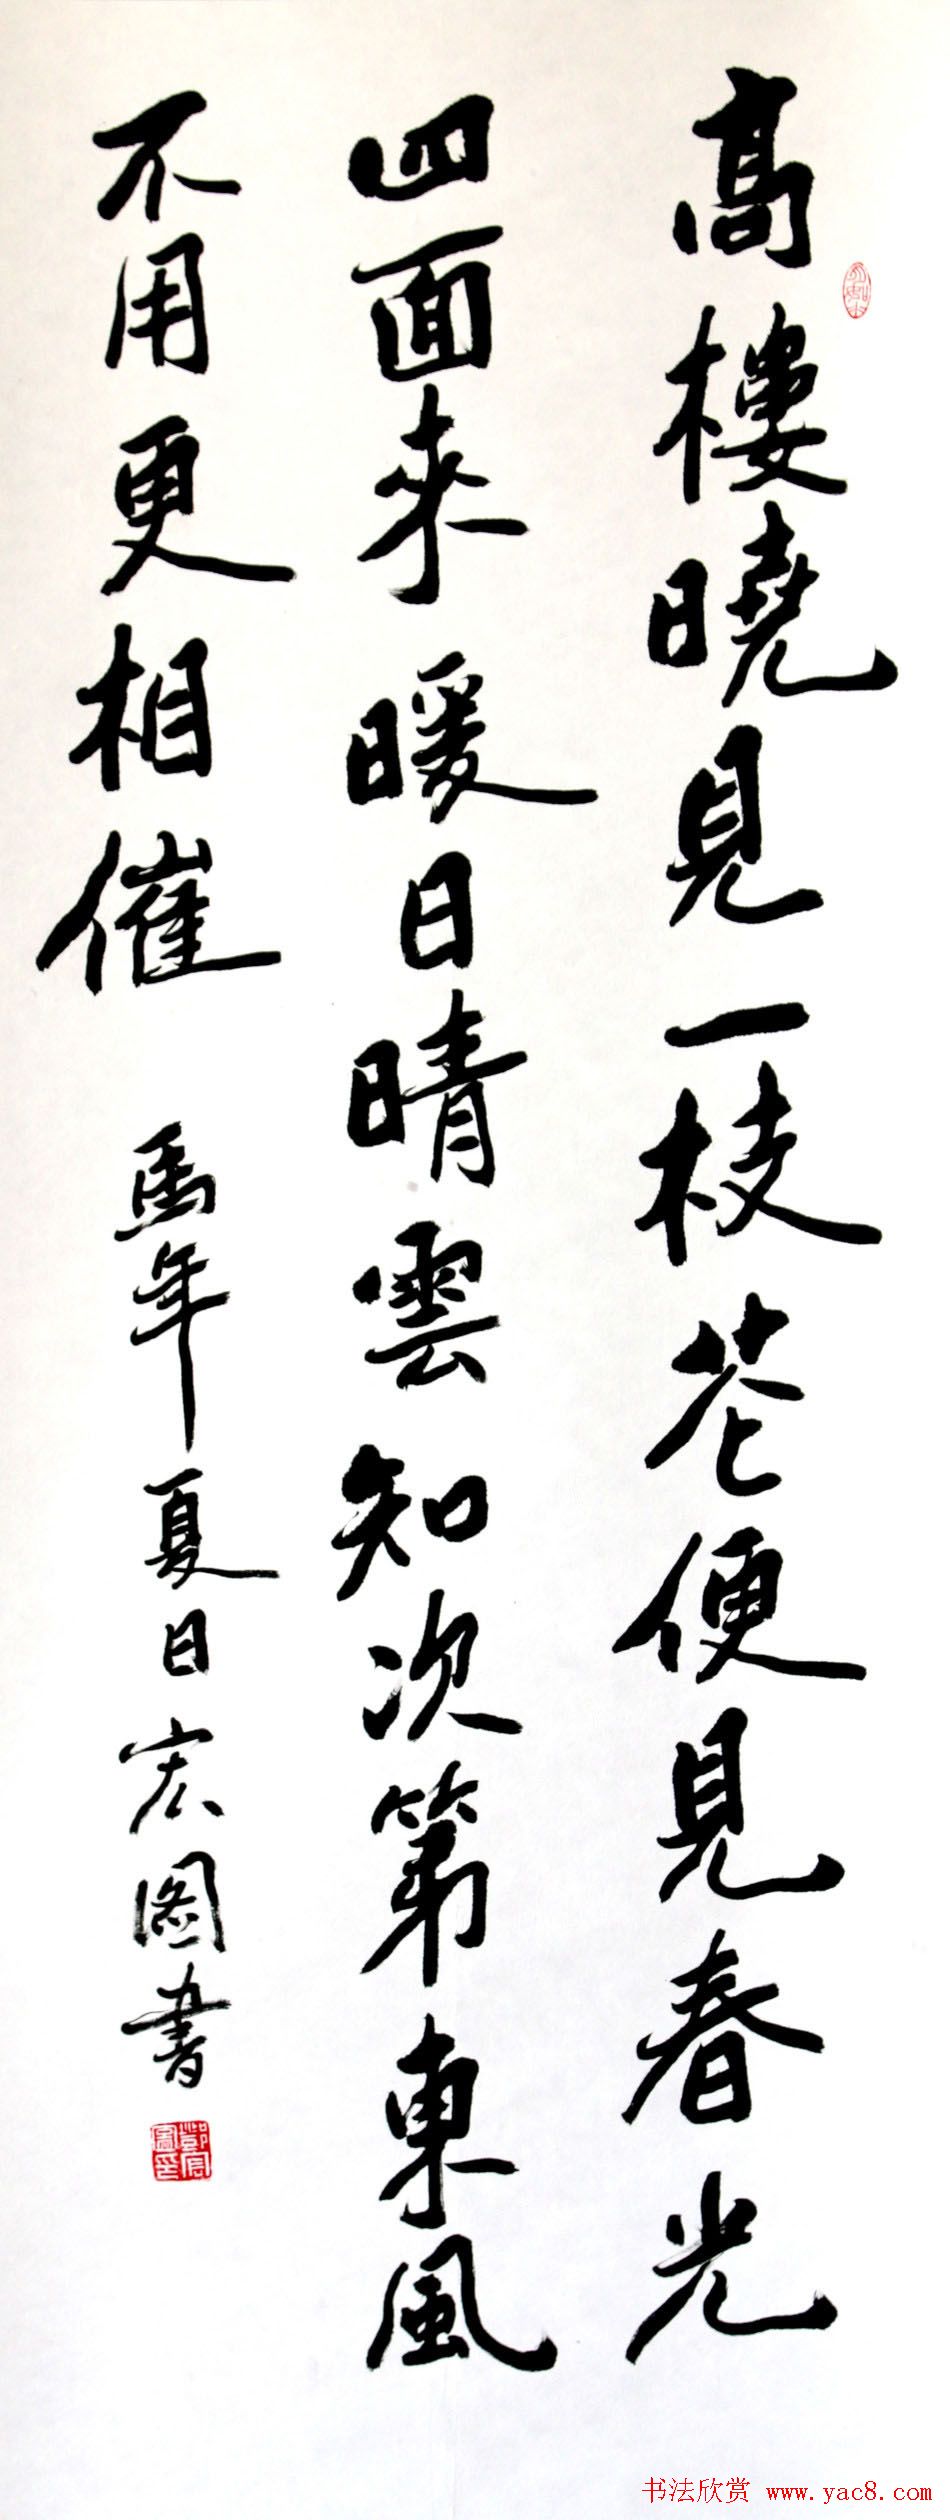 高樓曉見一枝花便見春光
四面來暖日晴雲知次第東風
不用更相催
馬年夏日宏圖書
鄧宏圖印
书法欣赏 www.yac8.com